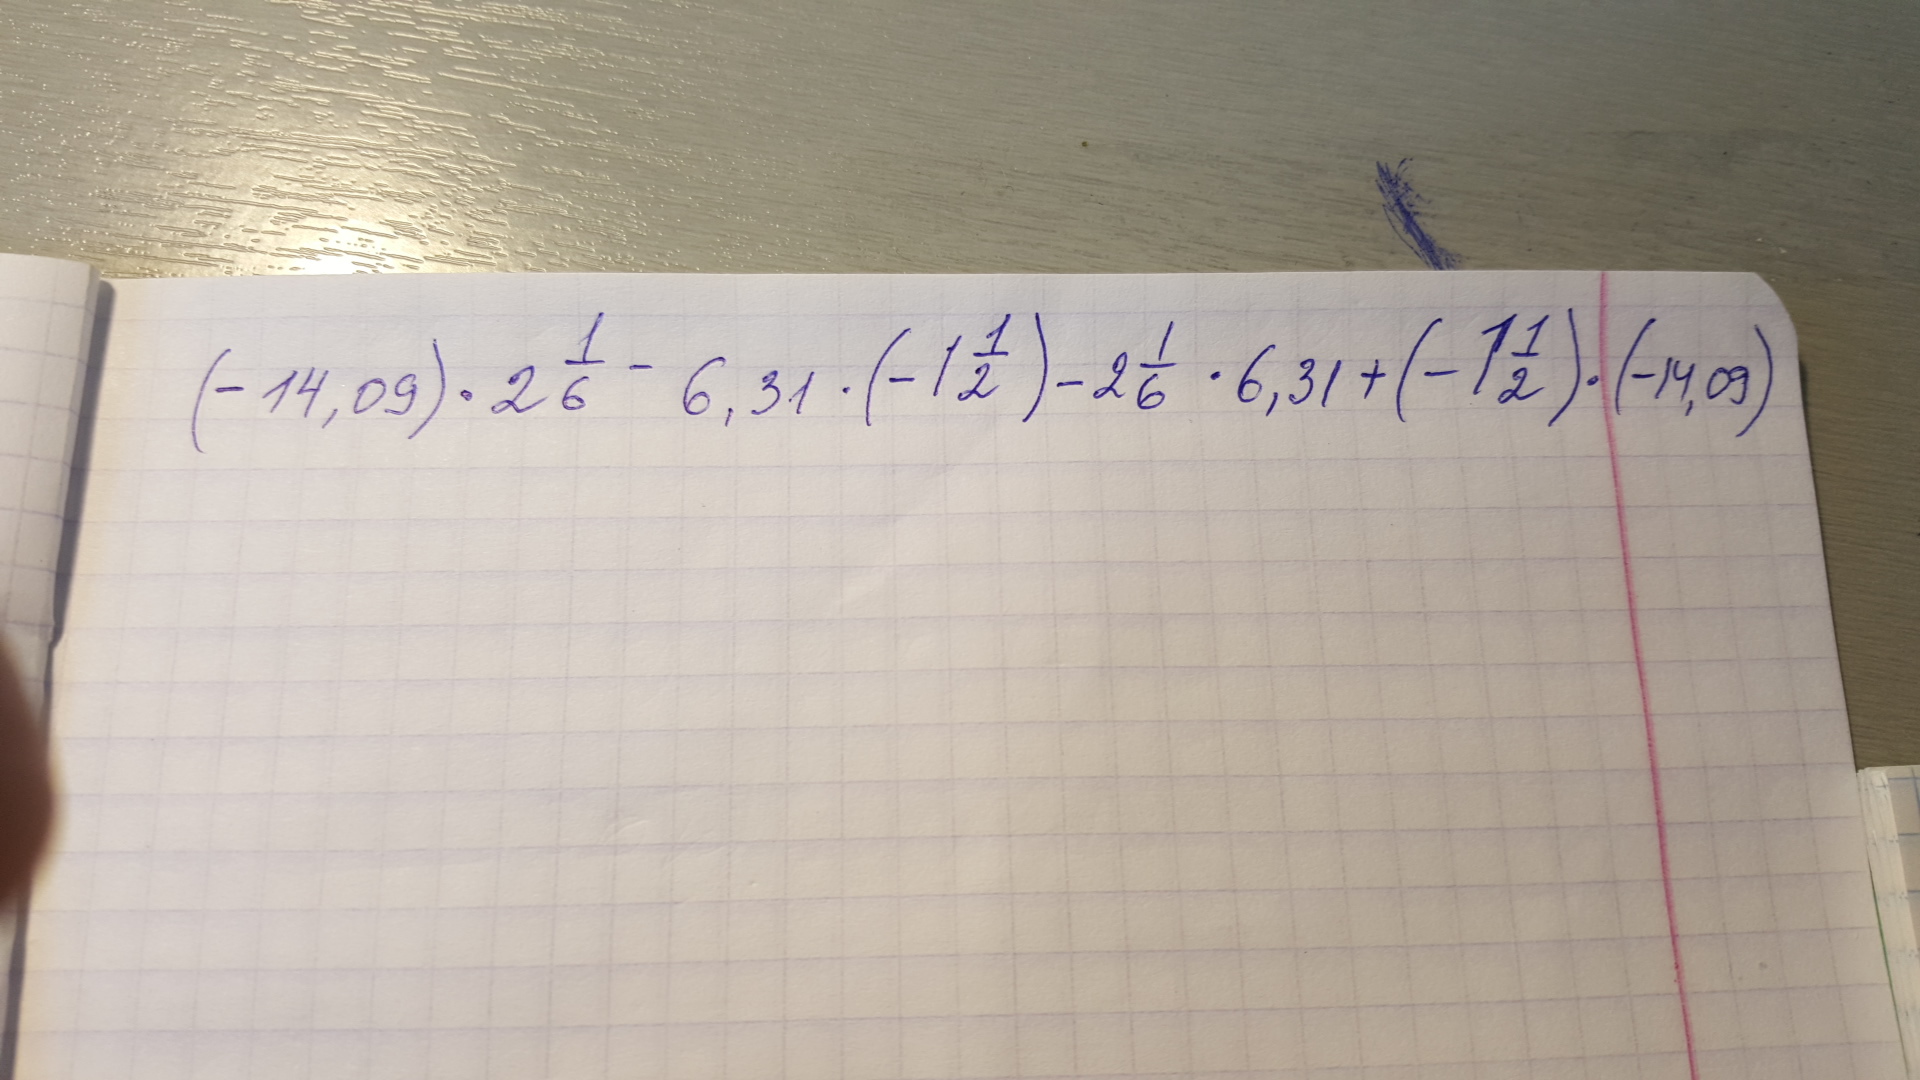 (-14,09) · 2 1/6 - 6,31 · (-1 1/2) - 2 1/6 · 6,31 + (-1 1/2) · (-14,09)